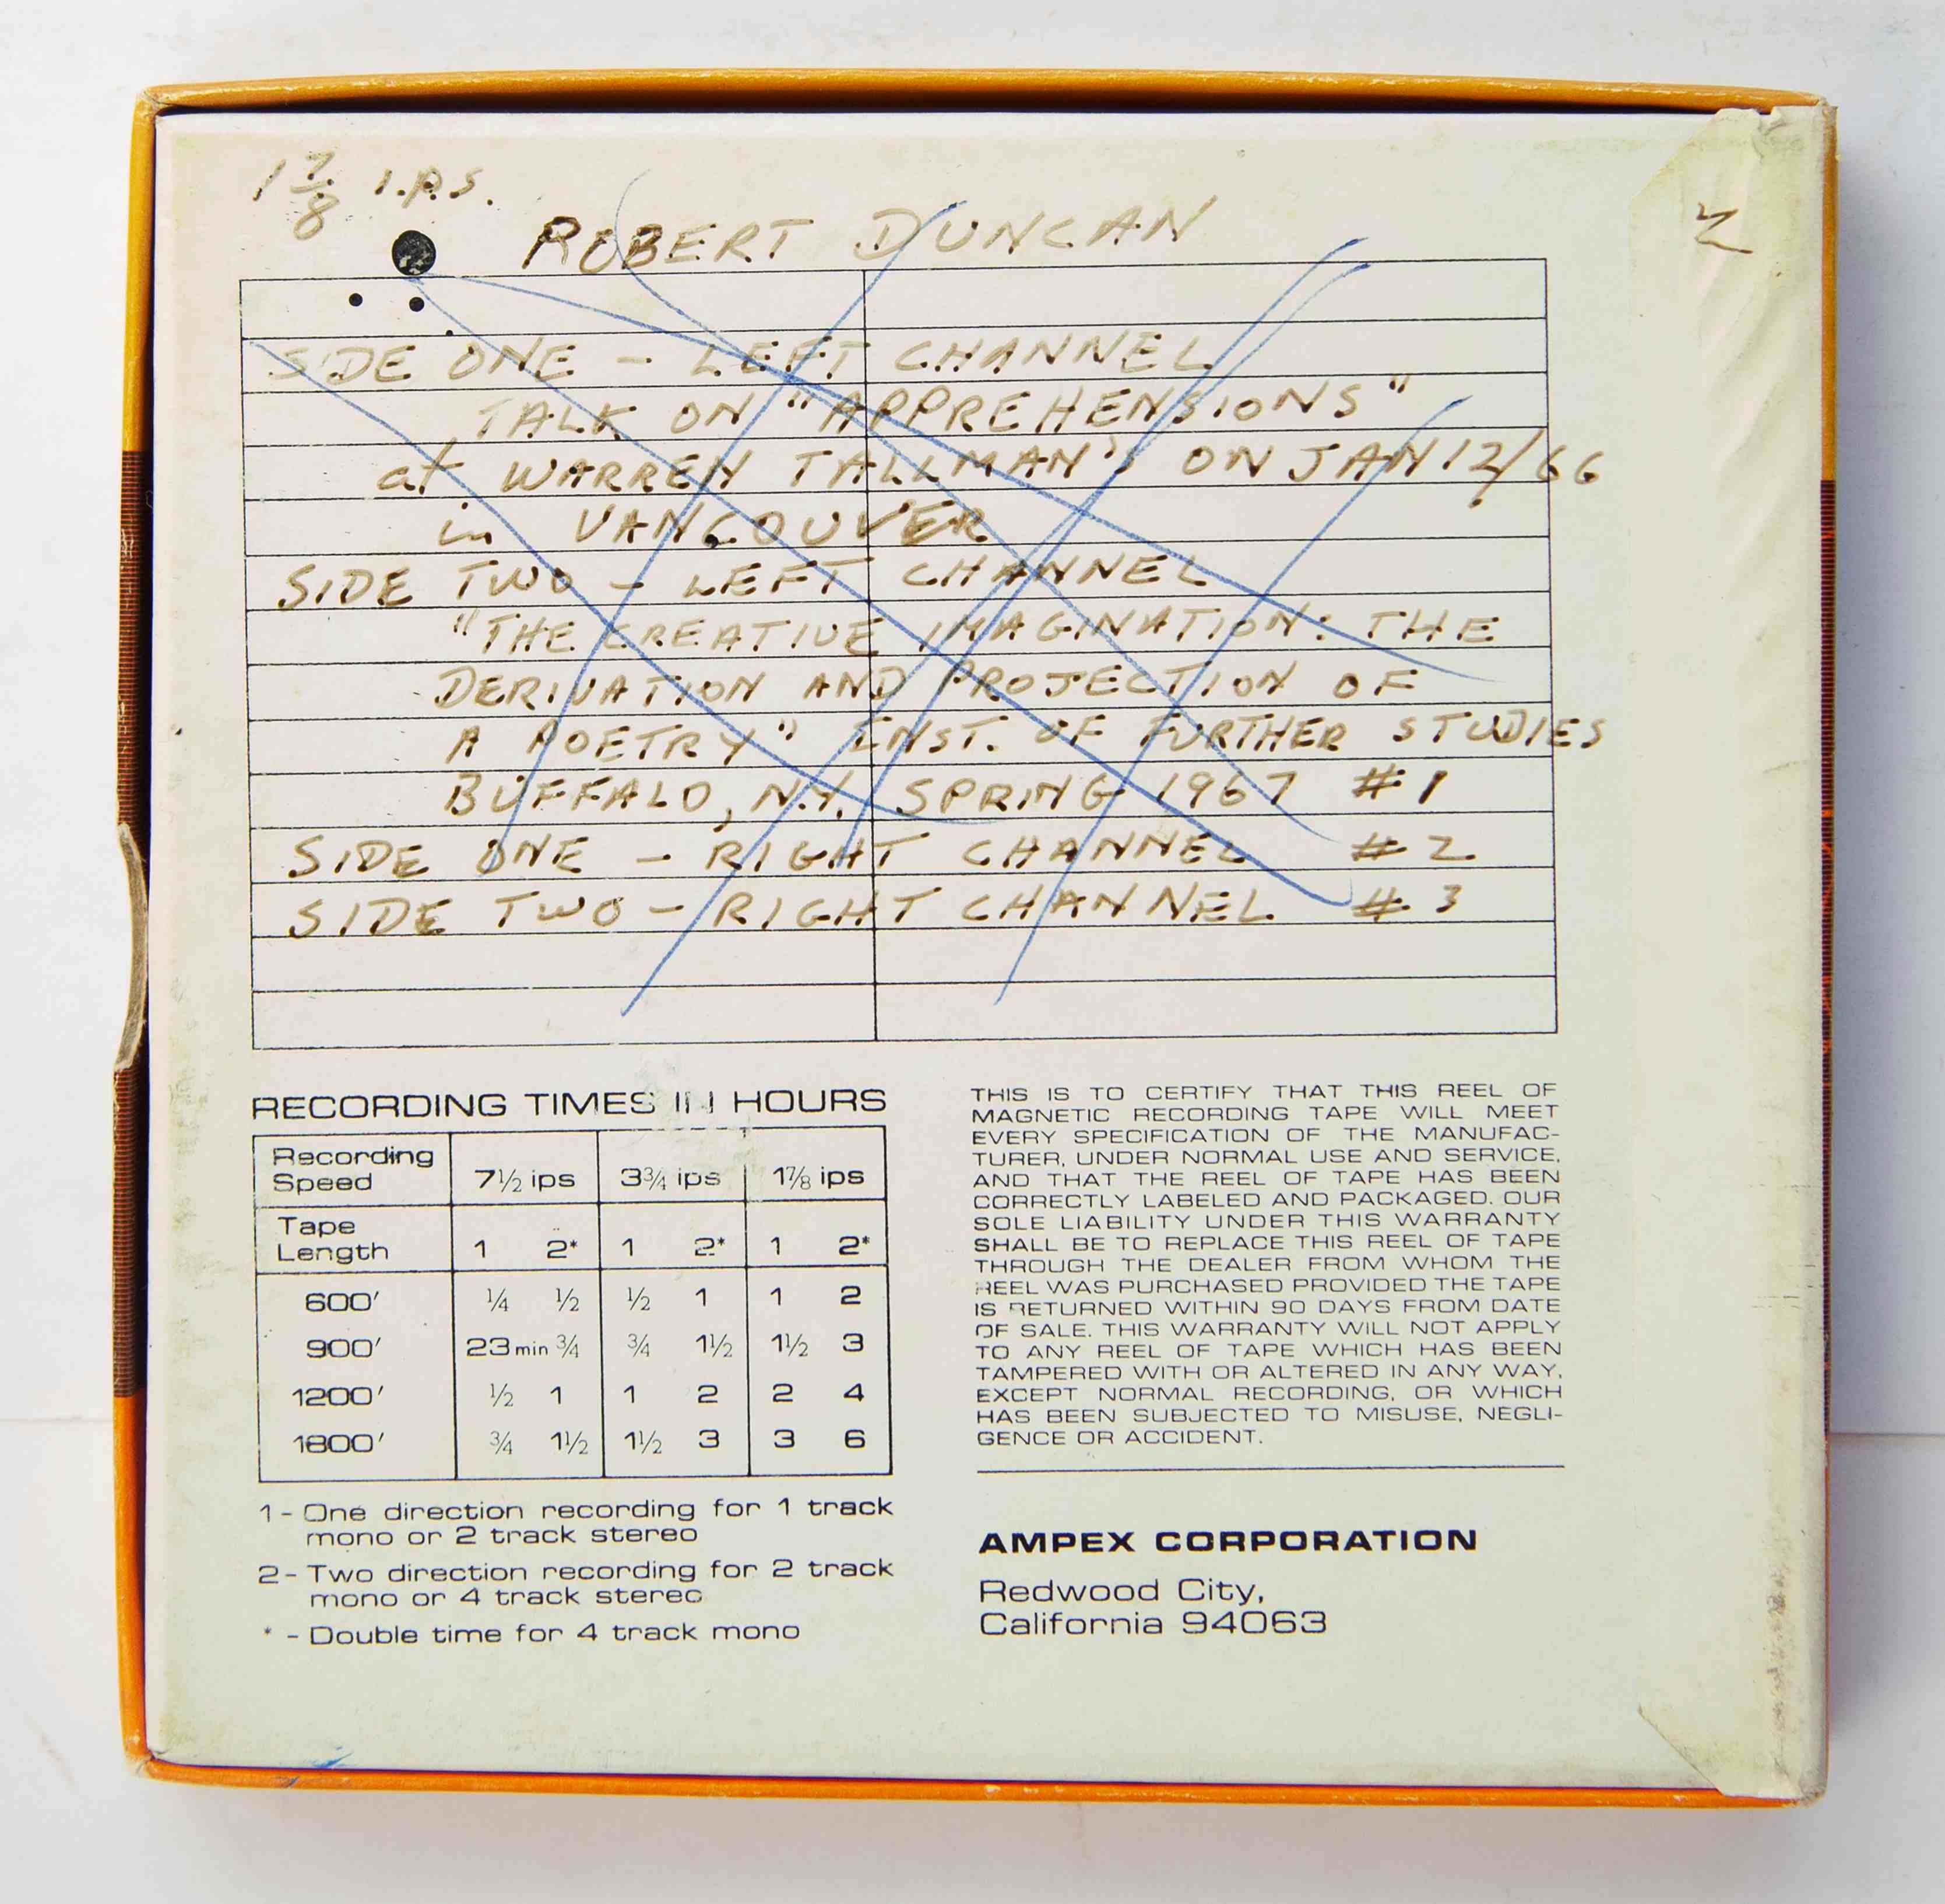 1 7/8 I.P.S.
ROBERT DUNCAN
SIDE ONE - LEFT CHANNEL
TALK ON "APPREHENSIONS"
at WARREN TALLMAN'S ON JAN 12/66
in VANCOUVER
SIDE TWO - LEFT CHANNEL
"THE CREATIVE IMAGINATION: THE
DERIVATION AND PROJECTION OF
A POETRY" INST. OF FURTHER STUDIES
BUFFALO, N.Y. SPRING 1967 #1
SIDE ONE - RIGHT CHANNEL #2
SIDE TWO - RIGHT CHANNEL #3
RECORDING TIMES IN HOURS
Recording
Speed 7½ ips 3¾ ips 1⅞ ips
Tape
Length 1 2* 1 2* 1 2*
600' ¼ ½ ½ 1 1 2
900' 23 min ¾ ¾ 1½ 1½ 3
1200' ½ 1 1 2 2 4
1800' ¾ 1½ 1½ 3 3 6
1 - One direction recording for 1 track
mono or 2 track stereo
2 - Two direction recording for 2 track
mono or 4 track stereo
* - Double time for 4 track mono
THIS IS TO CERTIFY THAT THIS REEL OF
MAGNETIC RECORDING TAPE WILL MEET
EVERY SPECIFICATION OF THE MANUFAC-
TURER, UNDER NORMAL USE AND SERVICE,
AND THAT THE REEL OF TAPE HAS BEEN
CORRECTLY LABELED AND PACKAGED. OUR
SOLE LIABILITY UNDER THIS WARRANTY
SHALL BE TO REPLACE THIS REEL OF TAPE
THROUGH THE DEALER FROM WHOM THE
REEL WAS PURCHASED PROVIDED THE TAPE
IS RETURNED WITHIN 90 DAYS FROM DATE
OF SALE. THIS WARRANTY WILL NOT APPLY
TO ANY REEL OF TAPE WHICH HAS BEEN
TAMPERED WITH OR ALTERED IN ANY WAY,
EXCEPT NORMAL RECORDING, OR WHICH
HAS BEEN SUBJECTED TO MISUSE, NEGLI-
GENCE OR ACCIDENT.
AMPEX CORPORATION
Redwood City,
California 94063